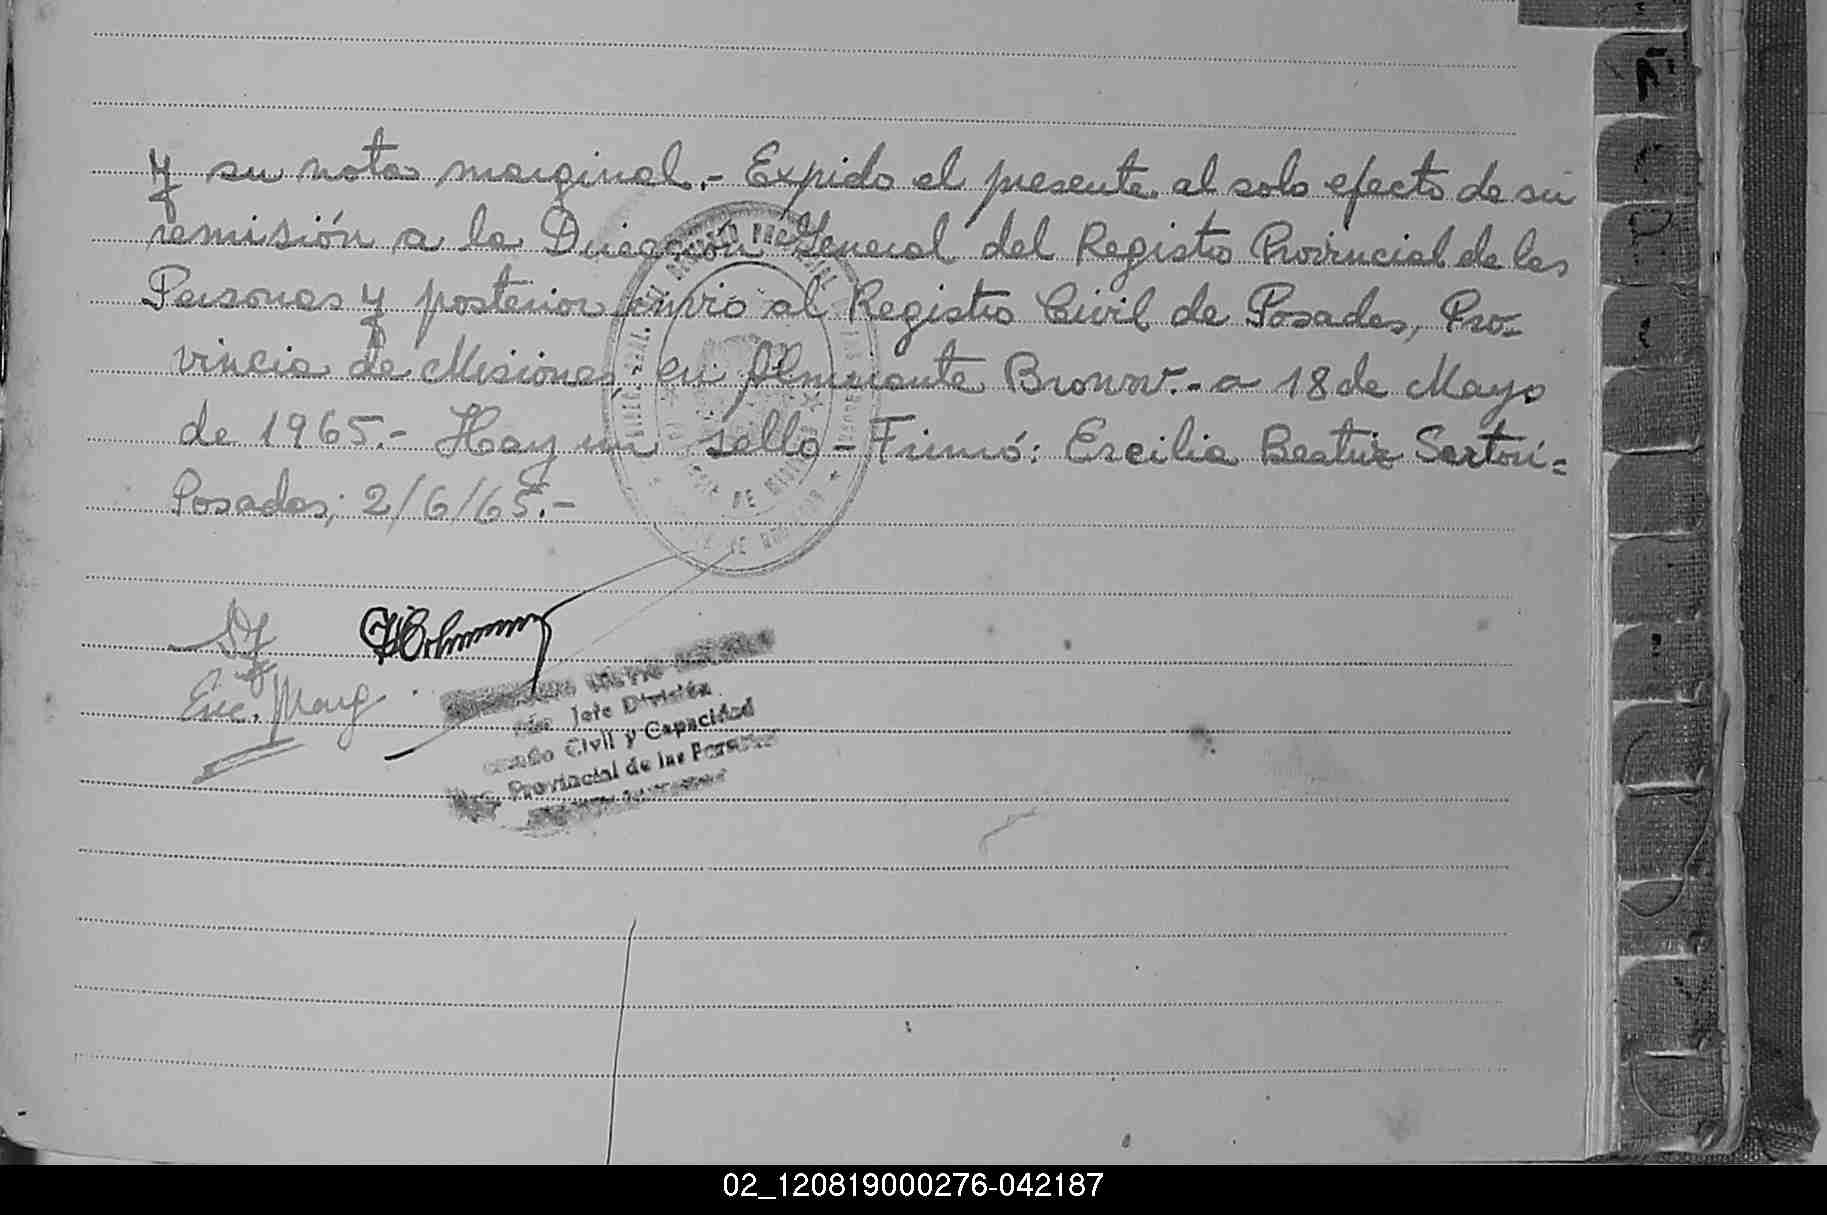 y su nota marginal.- Expido el presente al solo efecto de su
remisión a la Dirección General del Registro Provincial de las
Personas y posterior envio al Registro Civil de Posadas, Pro=
vincia de Misiones, en Almirante Brown.- a 18 de Mayo
de 1965.- Hay un sello - Firmó: Ercilia Beatriz Sartori=
Posadas, 2/6/65.-
Enc. Marg
Jefe División
Civil y Capacidad
Provincial de las Personas
02_120819000276-042187